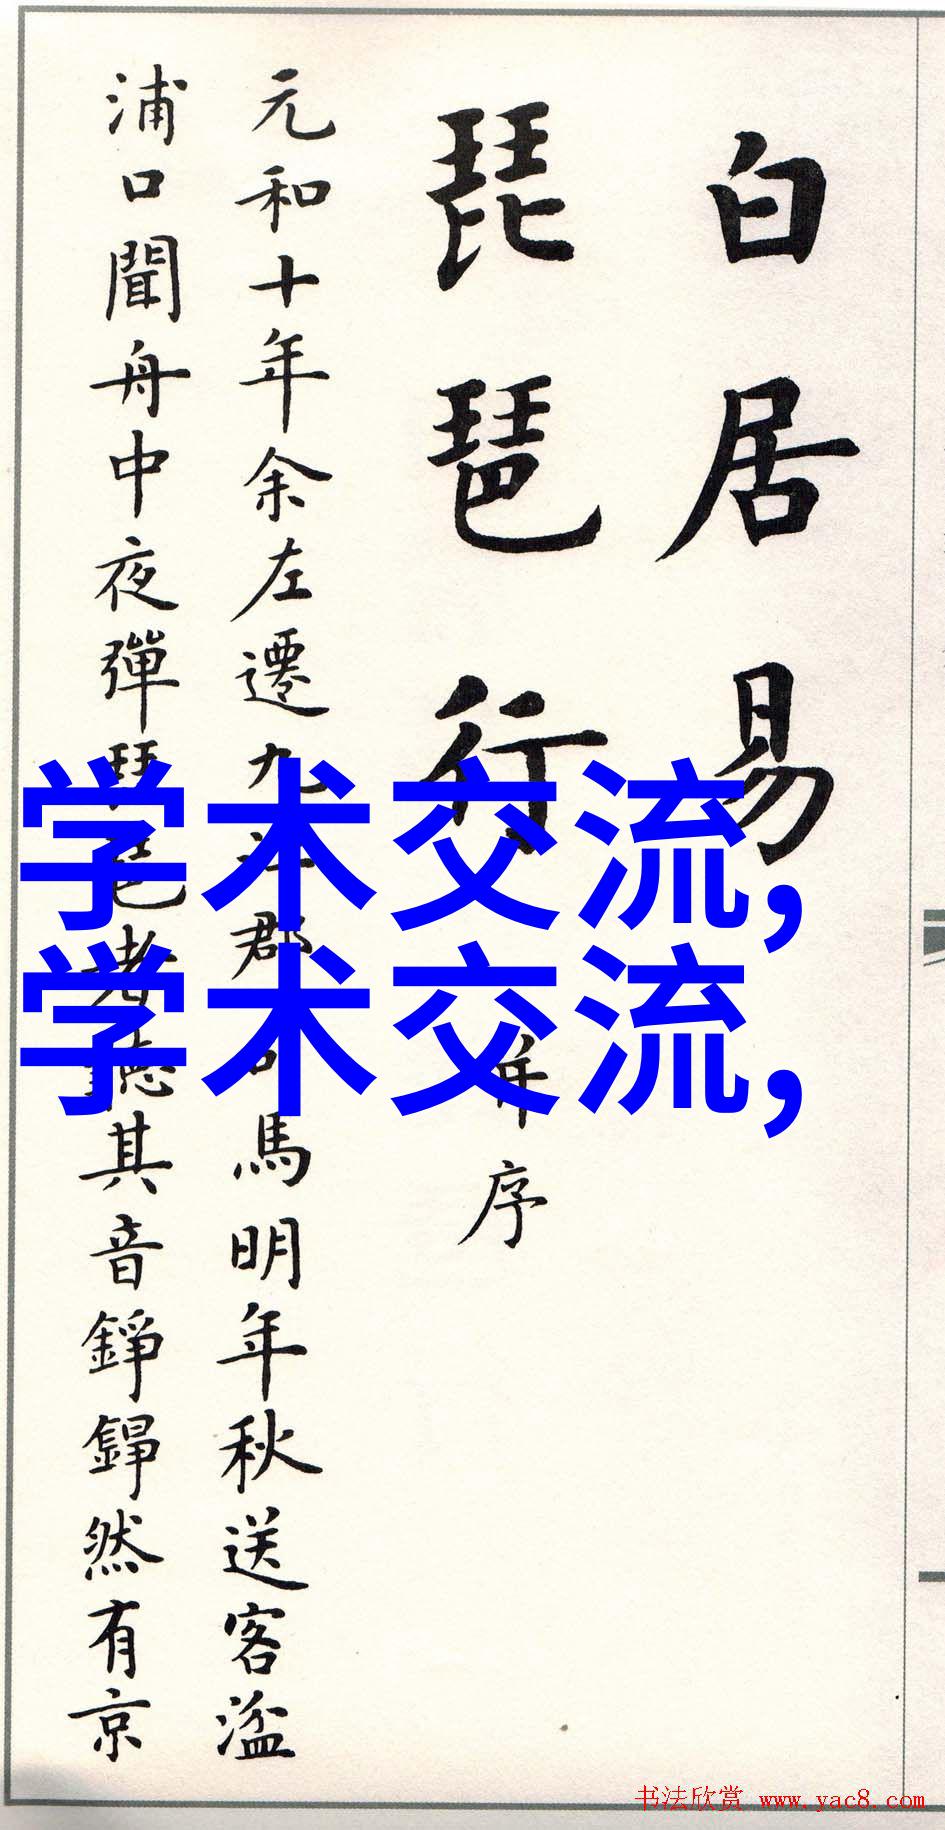 白居易
琵琶行 并序
元和十年余左遷九江郡司馬明年秋送客湓
浦口聞舟中夜彈琵琶者聽其音錚錚然有京
学术交流,
学术交流,
书法欣赏 www.yac8.com